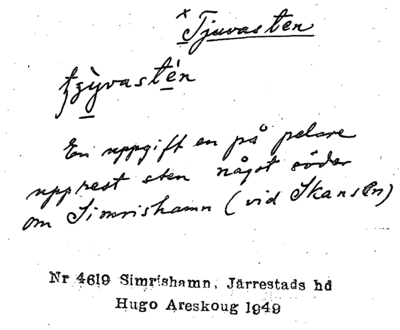 × Tjuvasten
En uppgift en på pelare
upprest sten något söder
om Simrishamn (vid Skansen)
Nr 4619 Simrishamn, Järrestads hd
Hugo Areskoug 1949